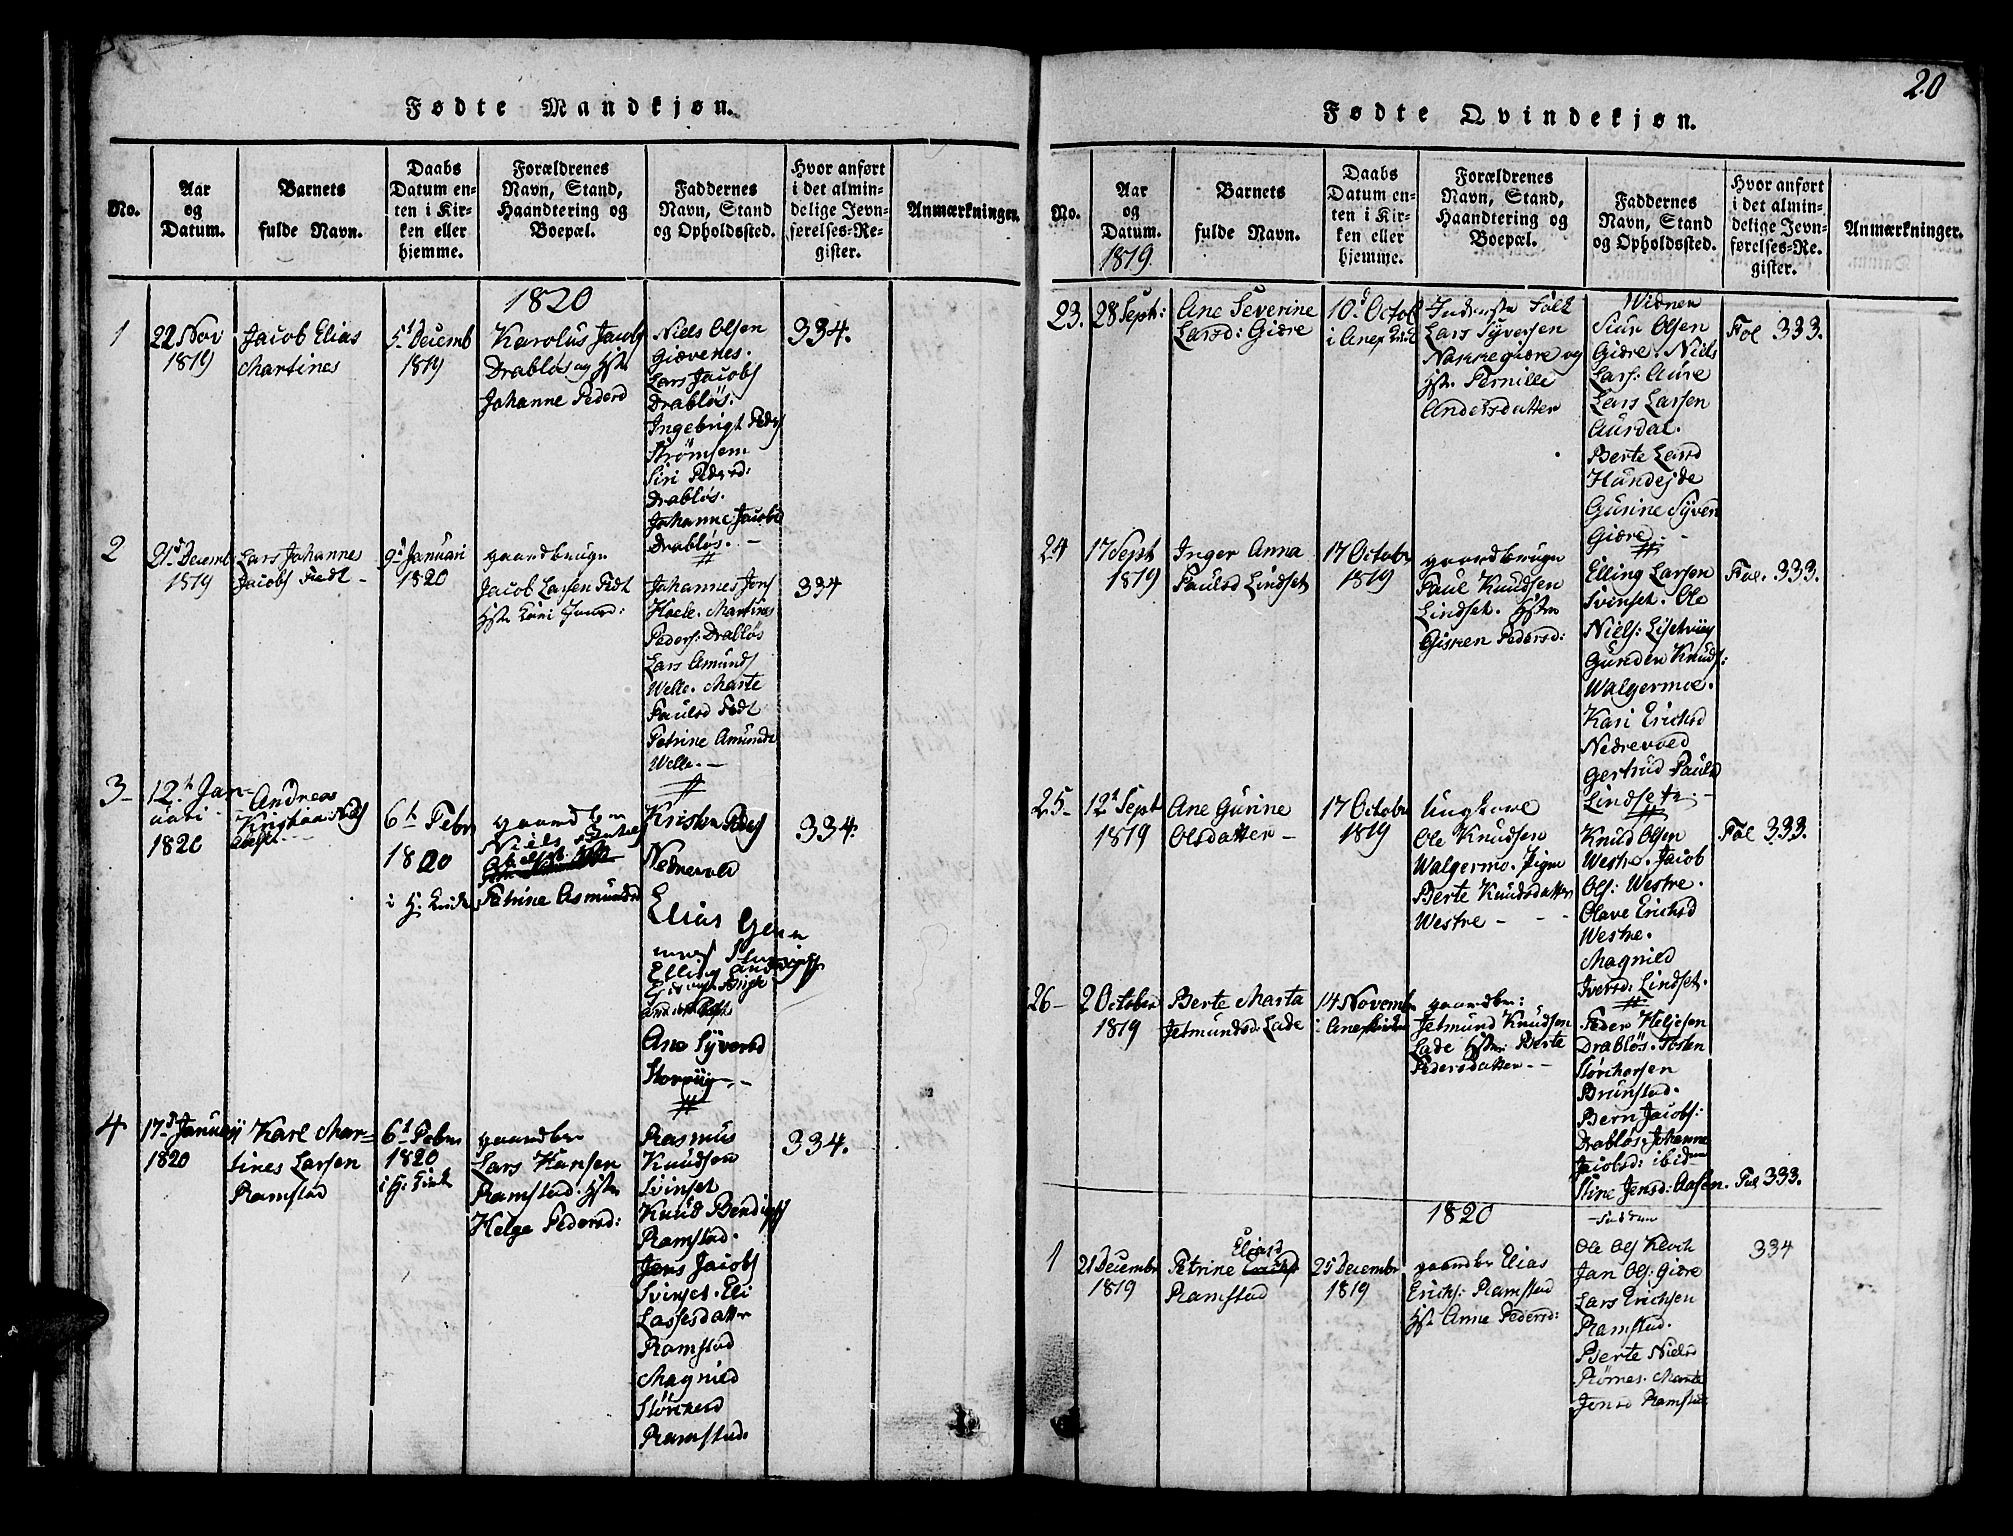 Fødte Mandkjøn.
No.
Aar
og
Datum.
Barnets
fulde Navn.
Daabs
Datum en-
ten i Kir-
ken eller
hjemme.
Forældrenes
Navn, Stand,
Haandtering og
Boepæl.
Faddernes
Navn, Stand
og Opholdssted.
Hvor anført
i det almin-
delige Jevn-
førelses-Re-
gister.
Anmærkninger.
1820
1
22 Nov
1819
Jacob Elias
Martines
5t Decemb
1819
Karolus Jacobs
Drabløs og Hstr
Johanne Pedersd
Niels Olsen
Giævenes.
Lars Jacobs
Drabløs.
Ingebrigt Peders
Strømsem
Siri Pedersd:
Drabløs.
Johanne Jacobsd
Drabløs. -
334.
2
21d Decemb
1819
Lars Johannes
Jacobs Fedt -
9d Januari
1820
gaardbruger
Jacob Larsen Fedt
Hstr Kari
Johannes Jons
Hoele. Martines
Peders: Drabløs
Lars Amunds
Welle. Marte
Paulsd Fedt
Petrine Amundsd
Welle. -
334
3-
12th Jan-
uari
1820
Andreas
Kristian Niels
6t Febr
1820
i H: Kirke
gaardbr
Niels
Petrine Asmundsd
Kristen Peders
Nedrevold
Elias
Elling
Ane Syversd
Storviig. -
334.
4
17d January
1820
Karl Mar-
tines Larsen
Ramstad
6t Febr
1820
i H: Kirk
gaardbr
Lars Hansen
Ramstad. Hstr
Helge Pedersd:
Rasmus
Knudsen
Svinset
Knud Bendixs
Ramstad.
Jens Jacobs
Svinset. Eli
Lassesdatter
Ramstad
Magnild
Størchersd
Ramstad.
334.
20
Fødte Qvindekjøn.
No.
Aar
og
Datum.
1819
Barnets
fulde Navn.
Daabs
Datum en-
ten i Kir-
ken eller
hjemme.
Forældrenes
Navn, Stand,
Haandtering og
Boepæl.
Faddernes
Navn, Stand
og Opholdssted.
Hvor anført
i det almin-
delige Jevn-
førelses-Re-
gister.
Anmærkninger.
23.
28 Sept:
Ane Severine
Larsd: Giære
10d Octob
i Anex Kirk
Inderste Folk
Lars Syversen
Nakkegiære og
Hstr. Pernille
Andersdatter
Widner
Siur Olsen
Giære. Niels
Lars: Aure
Lars Larsen
Aurdal.
Berte Larsd
Hundejde
Gurine Syvers
Giære. -
Fol 333.
24
17 Sept
1819
Inger Anna
Paulsd Lindset
17 Octobr
1819
gaardbruger
Paul Knudsen
Lindset. Hstr
Gisken Pedersd:
Elling Larsen
Svinset. Ole
Niels: Lisetviig
Gunder Knuds:
Walgermoe.
Kari Erichsd
Nedrevold
Gertrud Paulsd
Lindset. -
Fol. 333.
25-
12t Sept
1819
Ane Gurine
Olsdatter -
17 Octobr
1819
Ungkarl
Ole Knudsen
Walgermo. Pigen
Berte Knudsdatter
Westre - - -
Knud Olsen
Westre. Jacob
Ols: Westre.
Olave Erichsd
Westre.
Magnild
Iversd: Lindset.
Fol 333.
26-
2 October
1819
Berte Marta
Jetmundsd. Lade
14 Novembr
i Anexkirken
gaardbr:
Jetmund Knudsen
Lade Hstr: Berte
Pedersdatter - -
Peder Heljesen
Drabløs. Tosten
Størchersen
Brunstad.
Bern Jacobs:
Drabløs. Johanne
Jacobsd: ibidem
Stine Jensd: Aasen.
Fol 333.
1820
1
21 Decembr
1819
Eliasd
Petrine
Ramstad
25 Decembr
1819
gaardbr Elias
Erichs: Ramstad
Hst. Anne Pedersd:
Ole Ols
Jan Ols: Giære
Lars Erichsen
Ramstad.
Berte Nielsd
Rømes. Marte
Jonsd Ramstad
334